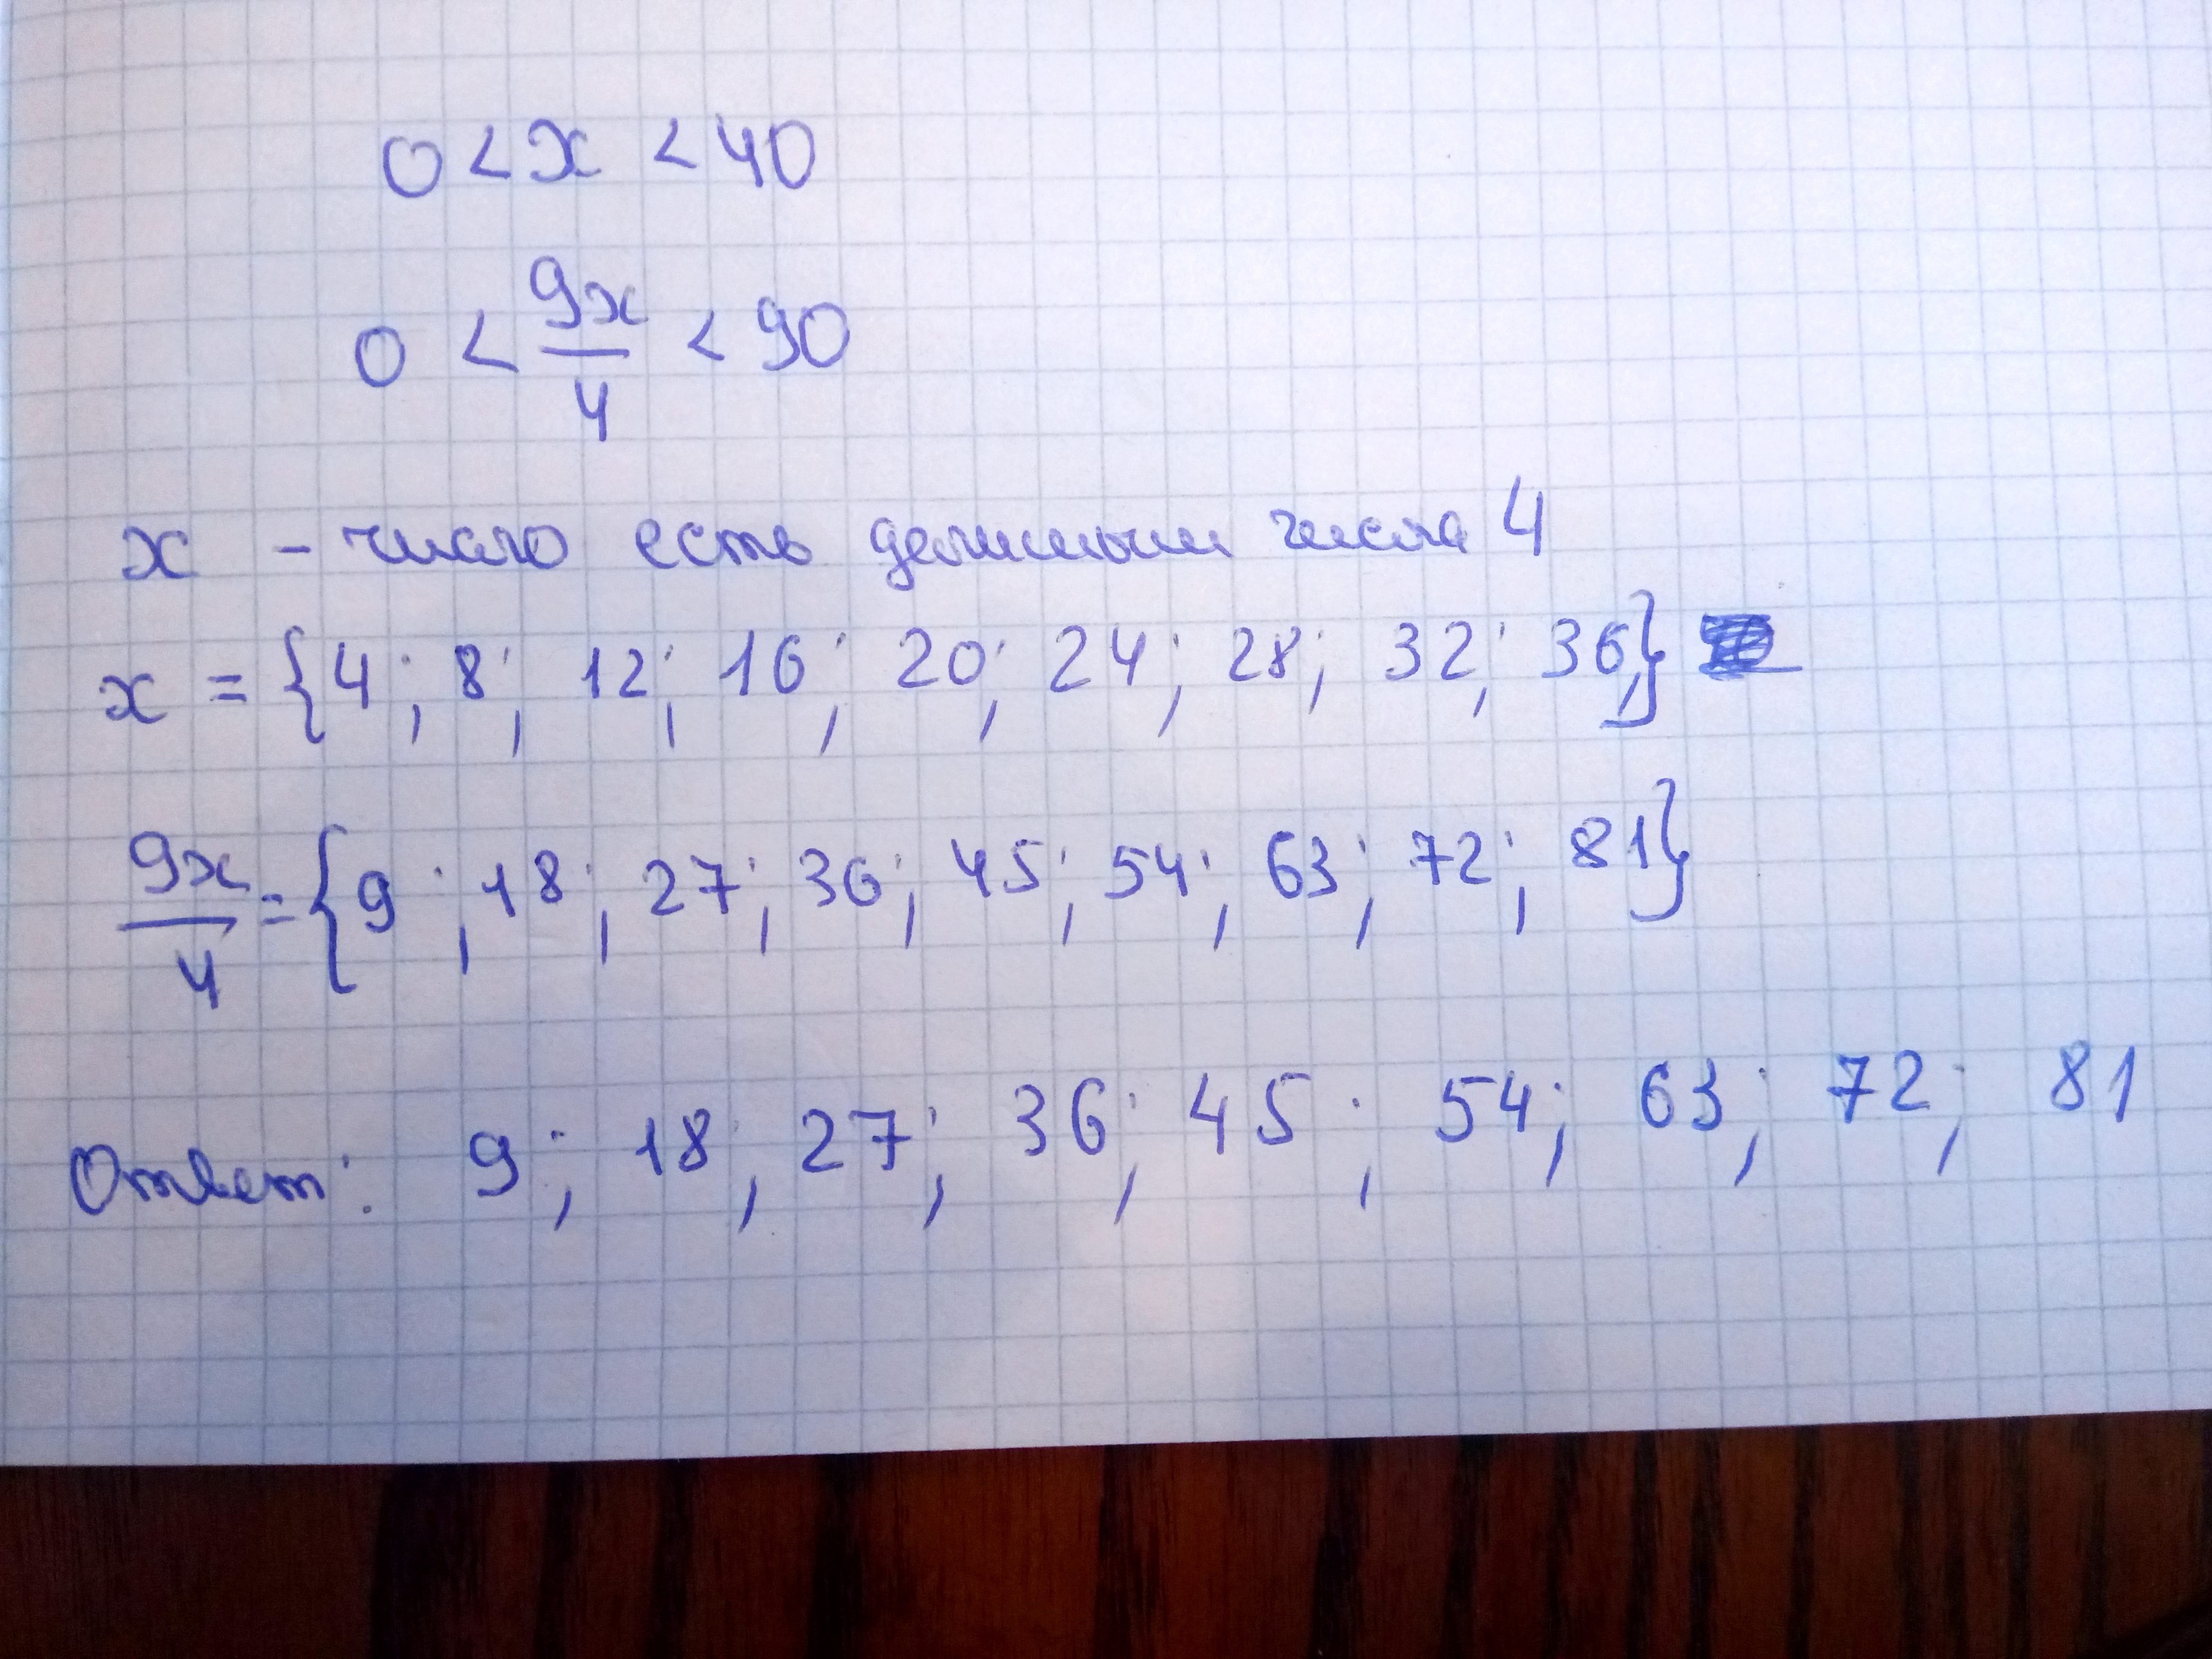 0 < x < 40
0 < 9x/4 < 90
x - число есть делимым числа 4
x = {4; 8; 12; 16; 20; 24; 28; 32; 36}
9x/4 = {9; 18; 27; 36; 45; 54; 63; 72; 81}
Ответ: 9; 18; 27; 36; 45; 54; 63; 72; 81